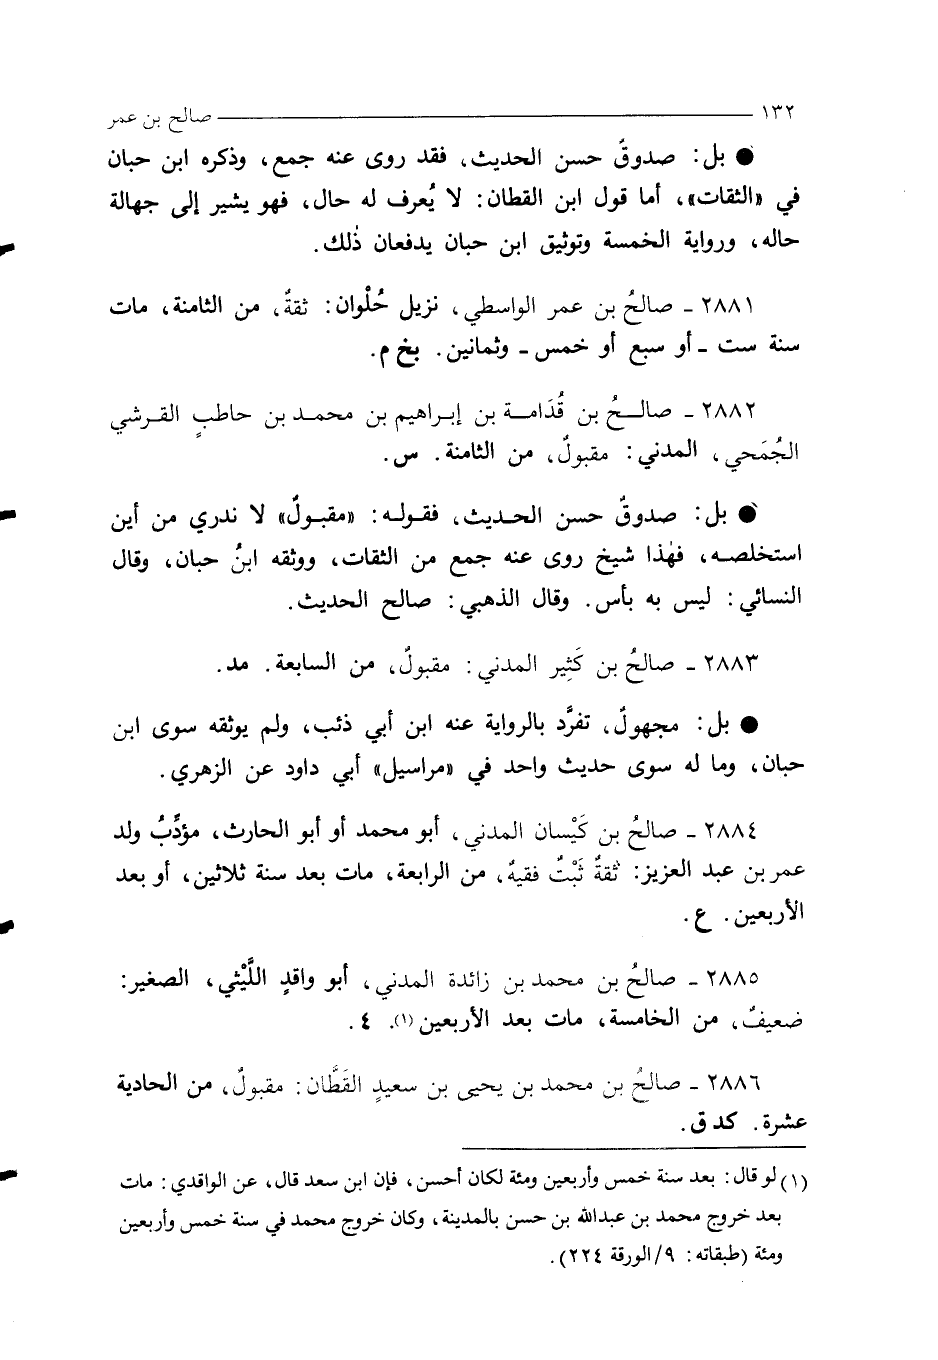 ١٣٢ صالح بن عمر
● بل: صدوقٌ حسن الحديث، فقد روى عنه جمع، وذكره ابن حبان
في «الثقات»، أما قول ابن القطان: لا يُعرف له حال، فهو يشير إلى جهالة
حاله، ورواية الخمسة وتوثيق ابن حبان يدفعان ذٰلك.
٢٨٨١ ـ صالحُ بن عمر الواسطي، نزيل حُلْوان: ثقةٌ، من الثامنة، مات
سنة ست ـ أو سبع أو خمس ـ وثمانين. بخ م.
٢٨٨٢ ـ صالـحُ بن قُدَامـة بن إبـراهيم بن محمـد بن حاطبٍ القـرشي
الجُمَحي، المدني: مقبولٌ، من الثامنة. س.
● بل: صدوقٌ حسن الحـديث، فقـولـه: «مقبـولٌ» لا ندري من أين
استخلصـه، فهٰذا شيخ روى عنه جمع من الثقات، ووثقه ابنُ حبان، وقال
النسائي: ليس به بأس. وقال الذهبي: صالح الحديث.
٢٨٨٣ ـ صالحُ بن كَثِير المدني: مقبولٌ، من السابعة. مد.
● بل: مجهولٌ، تفرَّد بالرواية عنه ابن أبي ذئب، ولم يوثقه سوى ابن
حبان، وما له سوى حديث واحد في «مراسيل» أبي داود عن الزهري.
٢٨٨٤ ـ صالحُ بن كَيْسان المدني، أبو محمد أو أبو الحارث، مؤدِّبُ ولد
عمر بن عبد العزيز: ثقةٌ ثَبْتٌ فقيهٌ، من الرابعة، مات بعد سنة ثلاثين، أو بعد
الأربعين. ع.
٢٨٨٥ ـ صالحُ بن محمد بن زائدة المدني، أبو واقدٍ اللَّيْثي، الصغير:
ضعيفٌ، من الخامسة، مات بعد الأربعين(١). ٤.
٢٨٨٦ ـ صالحُ بن محمد بن يحيى بن سعيدٍ القَطَّان: مقبولٌ، من الحادية
عشرة. كد ق.
(١) لو قال: بعد سنة خمس وأربعين ومئة لكان أحسن، فإن ابن سعد قال، عن الواقدي: مات
بعد خروج محمد بن عبدالله بن حسن بالمدينة، وكان خروج محمد في سنة خمس وأربعين
ومئة (طبقاته: ٩/الورقة ٢٢٤).